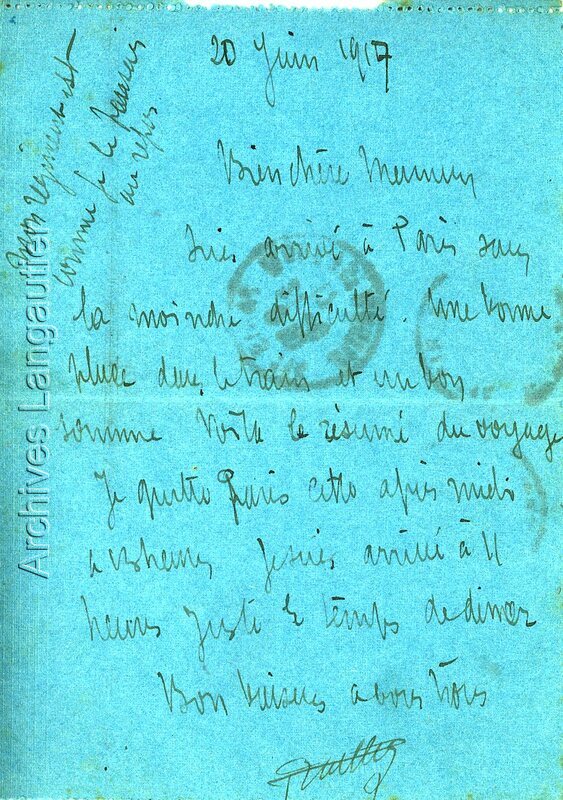 20 Juin 1917
Mon régiment est
comme je le pensais
au repos
Bien chère Maman
Suis arrivé à Paris sans
la moindre difficulté. Une bonne
place dans le train et un bon
somme Voila le résumé du voyage
Je quitte Paris cette après midi
a heures Je suis arrivé à 11
heures juste le temps de diner
Bon baisers a vous tous
Archives Langautier